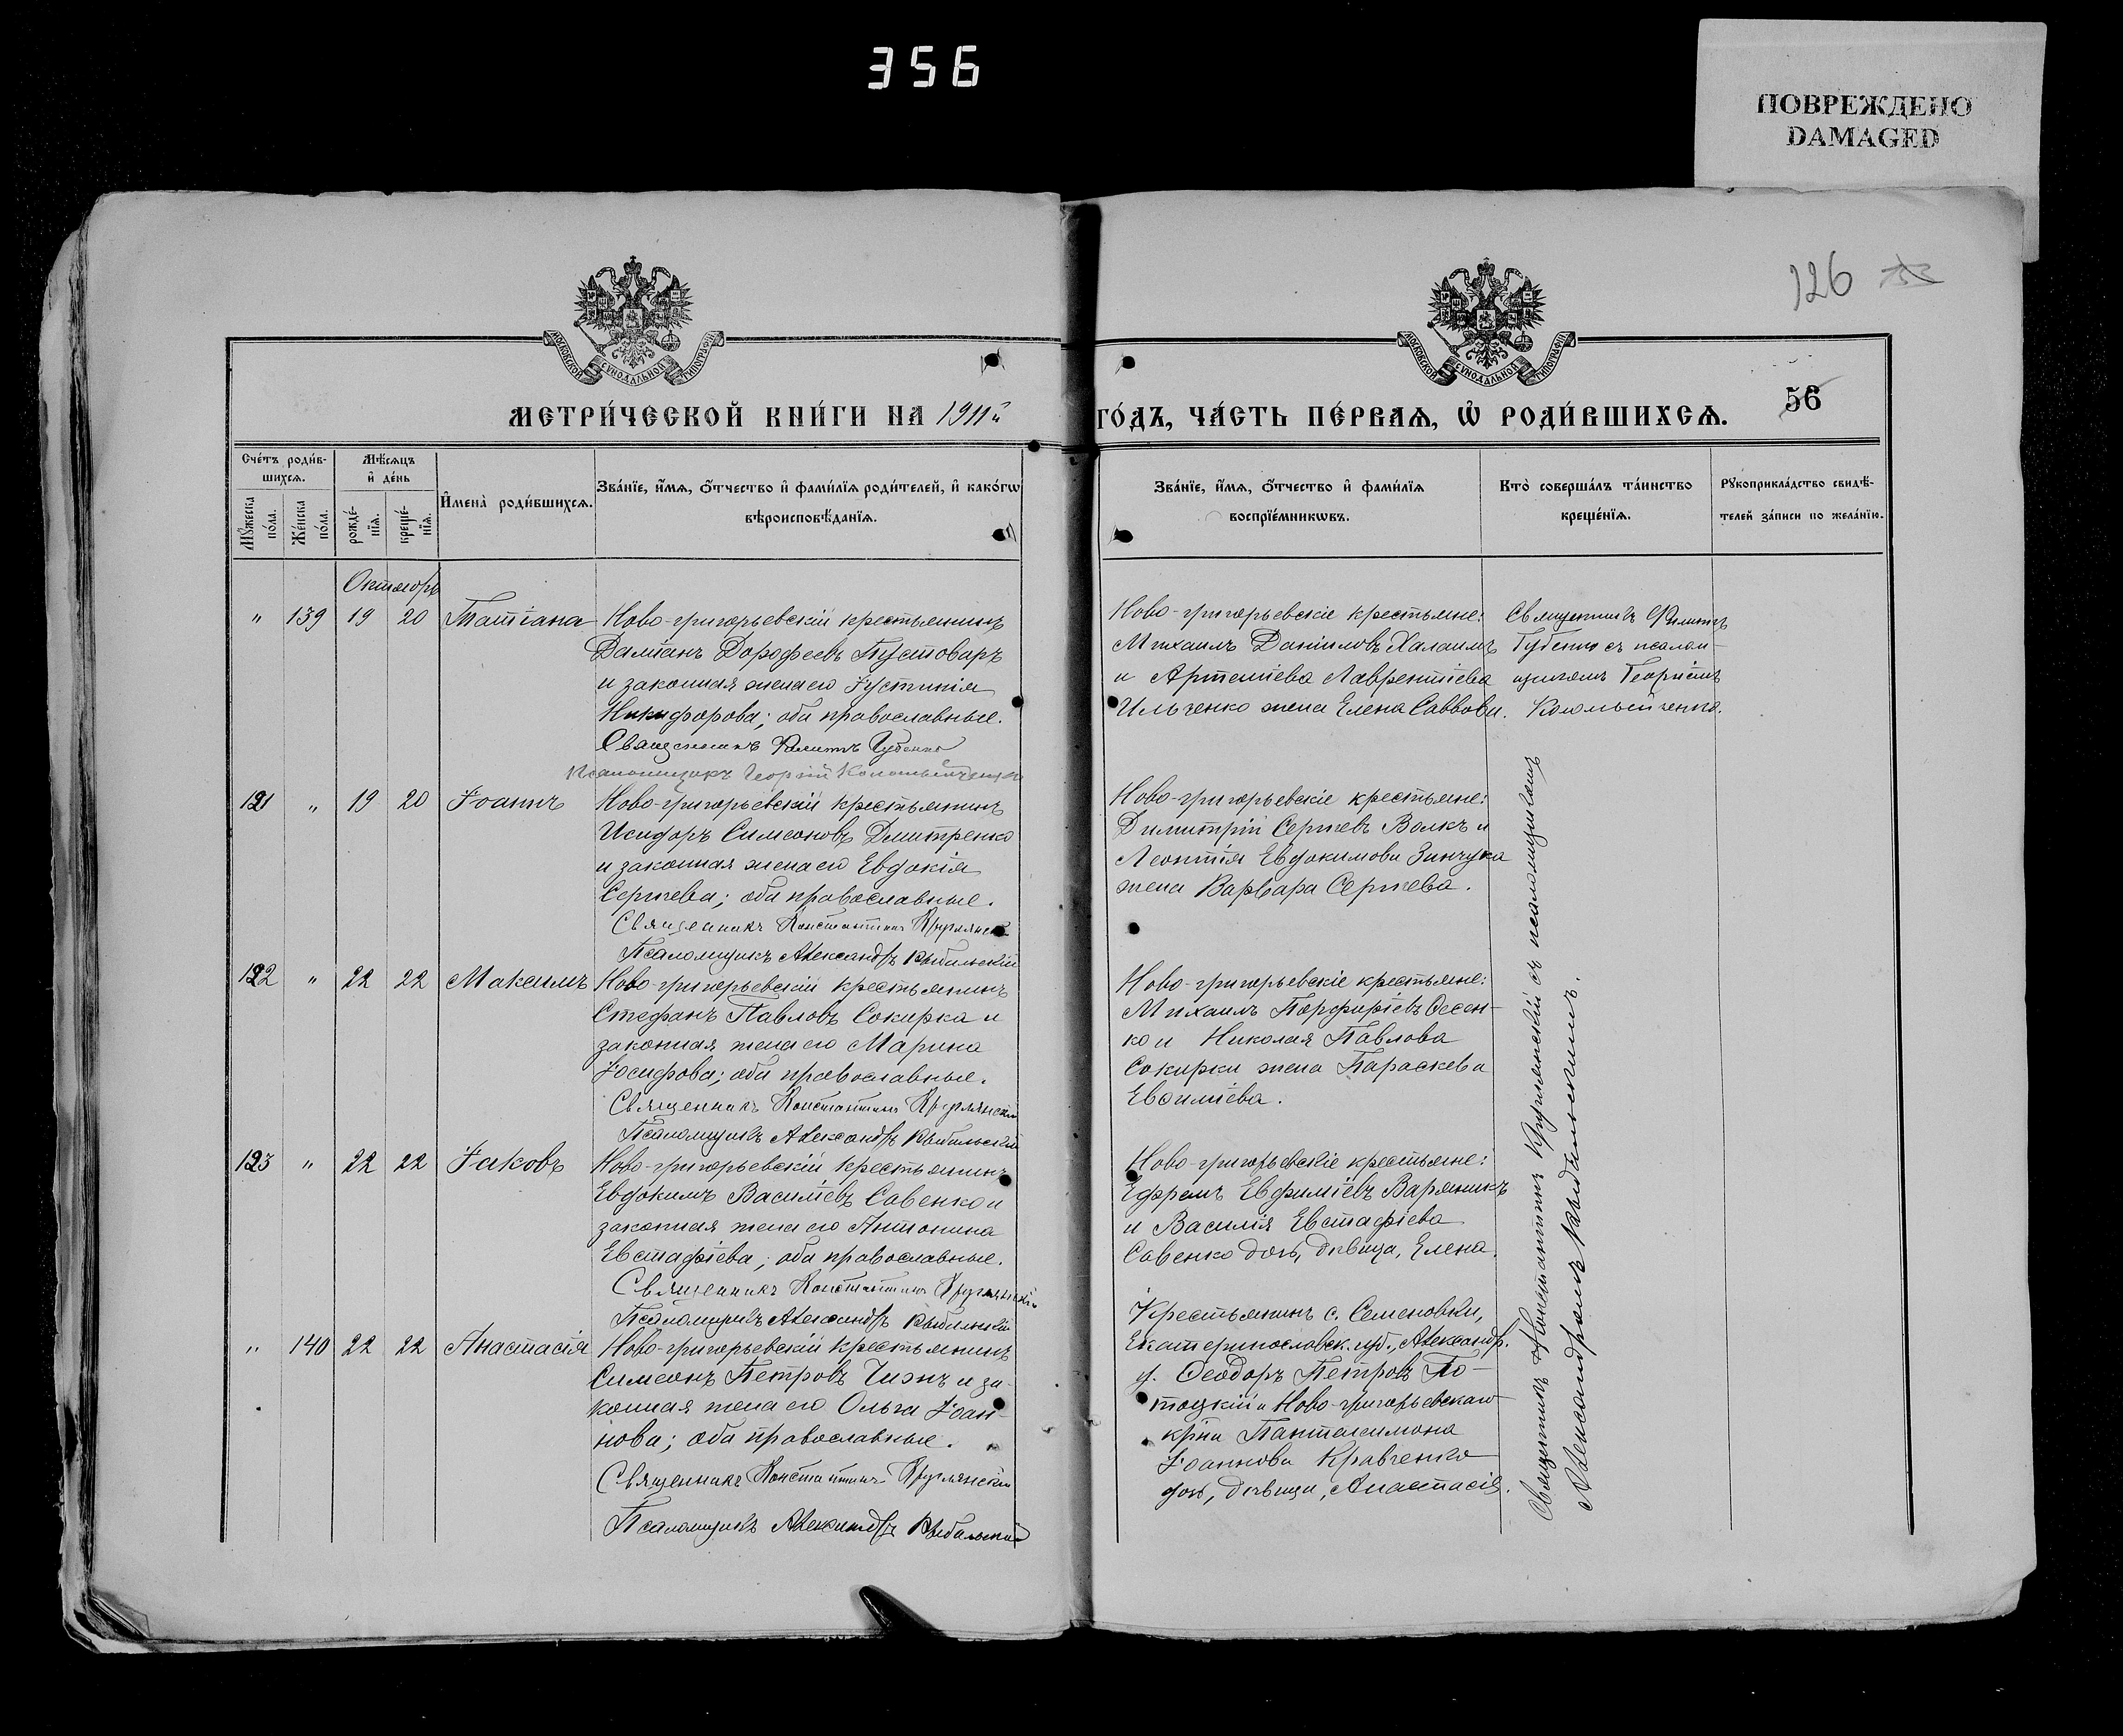 356
ПОВРЕЖДЕНО
DAMAGED
126
МОСКОВСКОЙ СѴНОДАЛЬНОЙ ТИПОГРАФІИ
МОСКОВСКОЙ СѴНОДАЛЬНОЙ ТИПОГРАФІИ
56
МЕТРИ́ЧЕСКОЙ КНИ́ГИ НА 1911й
ГО́ДЪ, ЧА́СТЬ ПЕ́РВАѦ, Ѡ҆ РОДИ́ВШИХСѦ.
Сче́тъ роди́в-
шихсѧ.
Мꙋ́жеска по́ла.
Же́нска по́ла.
Мѣ́сѧцъ
и҆ де́нь
рожде́-
нїѧ.
креще́-
нїѧ.
И҆мена̀ роди́вшихсѧ.
Зва́нїе, и҆́мѧ, ѻ҆́тчество и҆ фами́лїѧ роди́телей, и҆ како́гѡ
вѣроисповѣ́данїѧ.
Зва́нїе, и҆́мѧ, ѻ҆́тчество и҆ фами́лїѧ
воспрїе́мникѡвъ.
Кто̀ соверша́лъ та́инство
креще́нїѧ.
Рꙋкоприкла́дство свидѣ́-
телей за́писи по жела́нїю.
Октябрь
" 139 19 20 Татіана
Ново-григорьевскій крестьянинъ
Даміанъ Дорофеевъ Пустоваръ
и законная жена его Іустинія
Никифорова; оба православные.
Священникъ Филиппъ Губенко
Псаломщикъ Георгій Коломыйченко
Ново-григорьевскіе крестьяне:
Михаилъ Даніиловъ Халаимъ
и Артеміева Лаврентіева
Ильченко жена Елена Саввова.
Священникъ Филиппъ
Губенко съ псалом-
щикомъ Георгіемъ
Коломыйченко.
121 " 19 20 Іоаннъ
Ново-григорьевскій крестьянинъ
Исидоръ Симеоновъ Дмитренко
и законная жена его Евдокія
Сергіева; оба православные.
Священникъ Константинъ Круглянскій
Псаломщикъ Александръ Кыбальскій
Ново-григорьевскіе крестьяне:
Димитрій Сергіевъ Волкъ и
Леонтія Евдокимова Зинчука
жена Варвара Сергіева.
122 " 22 22 Максимъ
Ново-григорьевскій крестьянинъ
Стефанъ Павловъ Сокирка и
законная жена его Марина
Іосифова; оба православные.
Священникъ Константинъ Круглянскій
Псаломщикъ Александръ Кыбальскій
Ново-григорьевскіе крестьяне:
Михаилъ Порфиріевъ Фесен-
ко и Николая Павлова
Сокирки жена Параскева
123 " 22 22 Іаковъ
Ново-григорьевскій крестьянинъ
Евдокимъ Василіевъ Савенко и
законная жена его Антонина
Евстафіева; оба православные.
Священникъ Константинъ Круглянскій
Псаломщикъ Александръ Кыбальскій
Ново-григорьевскіе крестьяне:
Ефремъ Евфиміевъ Варяникъ
и Василія Евстафіева
Савенко дочь, дѣвица, Елена.
" 140 22 22 Анастасія
Ново-григорьевскій крестьянинъ
Симеонъ Петровъ и за-
конная жена его Ольга Іоан-
нова; оба православные.
Священникъ Константинъ Круглянскій
Псаломщикъ Александръ Кыбальскій
Крестьянинъ с. Семеновки,
Екатеринославск. губ., Александр.
у. Ѳеодоръ Петровъ По-
тоцкій и Ново-григорьевскаго
кр-на Пантелеимона
Іоаннова Кравченко
дочь, дѣвица, Анастасія.
Священникъ Константинъ Круглянскій съ псаломщикомъ
Александромъ Кыбальскимъ.